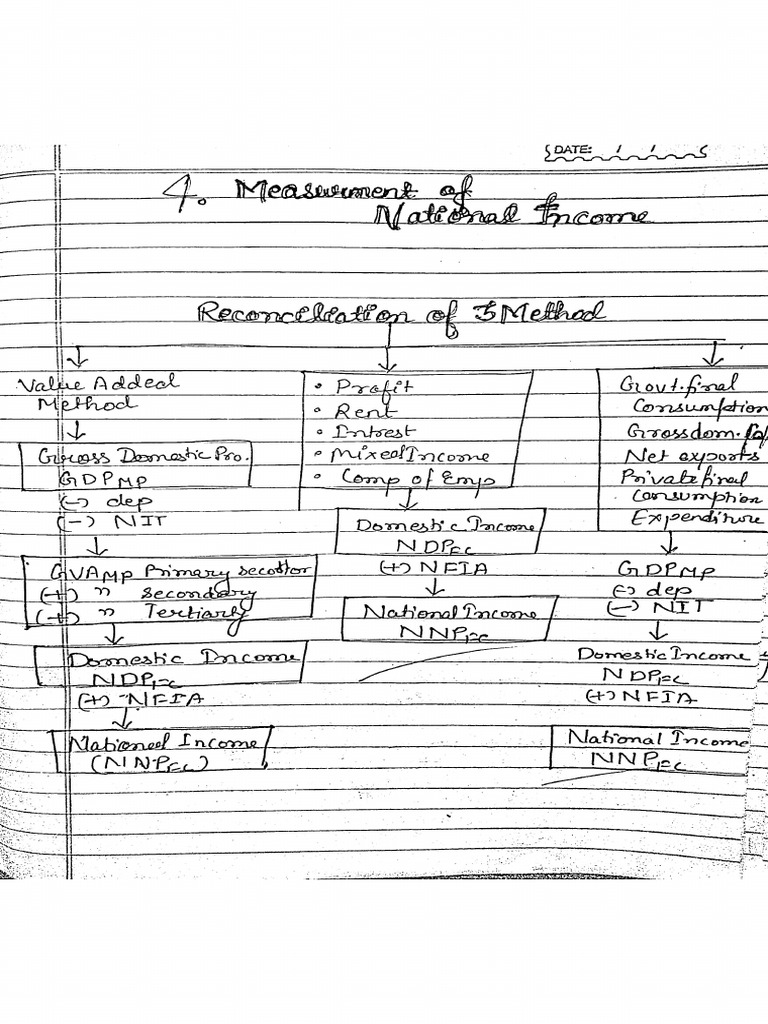 DATE: / /
4. Measurment of
National Income
Reconciliation of 3 Method
Value Added
Method
Gross Domestic Pro.
GDPMP
(-) dep
(-) NIT
GVAMP Primary secotor
(+) " secondary
(+) " Tertiarly
Domestic Income
NDPFC
(+) NFIA
National Income
(NNPFC)
• Profit
• Rent
• Intrest
• Mixed Income
• Comp of Emp
Domestic Income
NDPFC
(+) NFIA
National Income
NNPFC
Govt. final
Consumption
Gross dom.
Net exports
Private final
Consumption
Expenditure
GDPMP
(-) dep
(-) NIT
Domestic Income
NDPFC
(+) NFIA
National Income
NNPFC